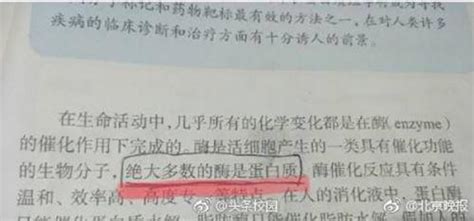 标记和药物靶标最有效的方法之一，在对人类许多
疾病的临床诊断和治疗方面有十分诱人的前景。
在生命活动中，几乎所有的化学变化都是在酶(enzyme)
的催化作用下完成的。酶是活细胞产生的一类具有催化功能
的生物分子，绝大多数的酶是蛋白质，酶催化反应具有条件
温和、效率高、高度专一等特点。在人的消化液中，蛋白酶
只能催化蛋白质水解，脂肪酶只能催化脂肪水解
@头条校园
@北京晚报